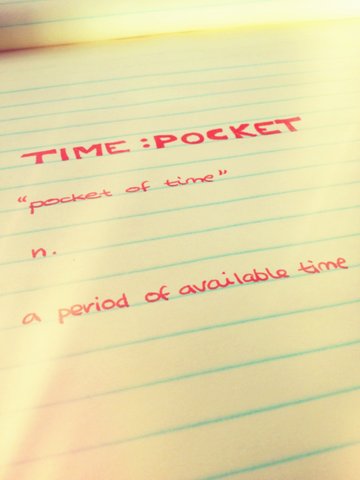 TIME :POCKET
"pocket of time"
n.
a period of available time